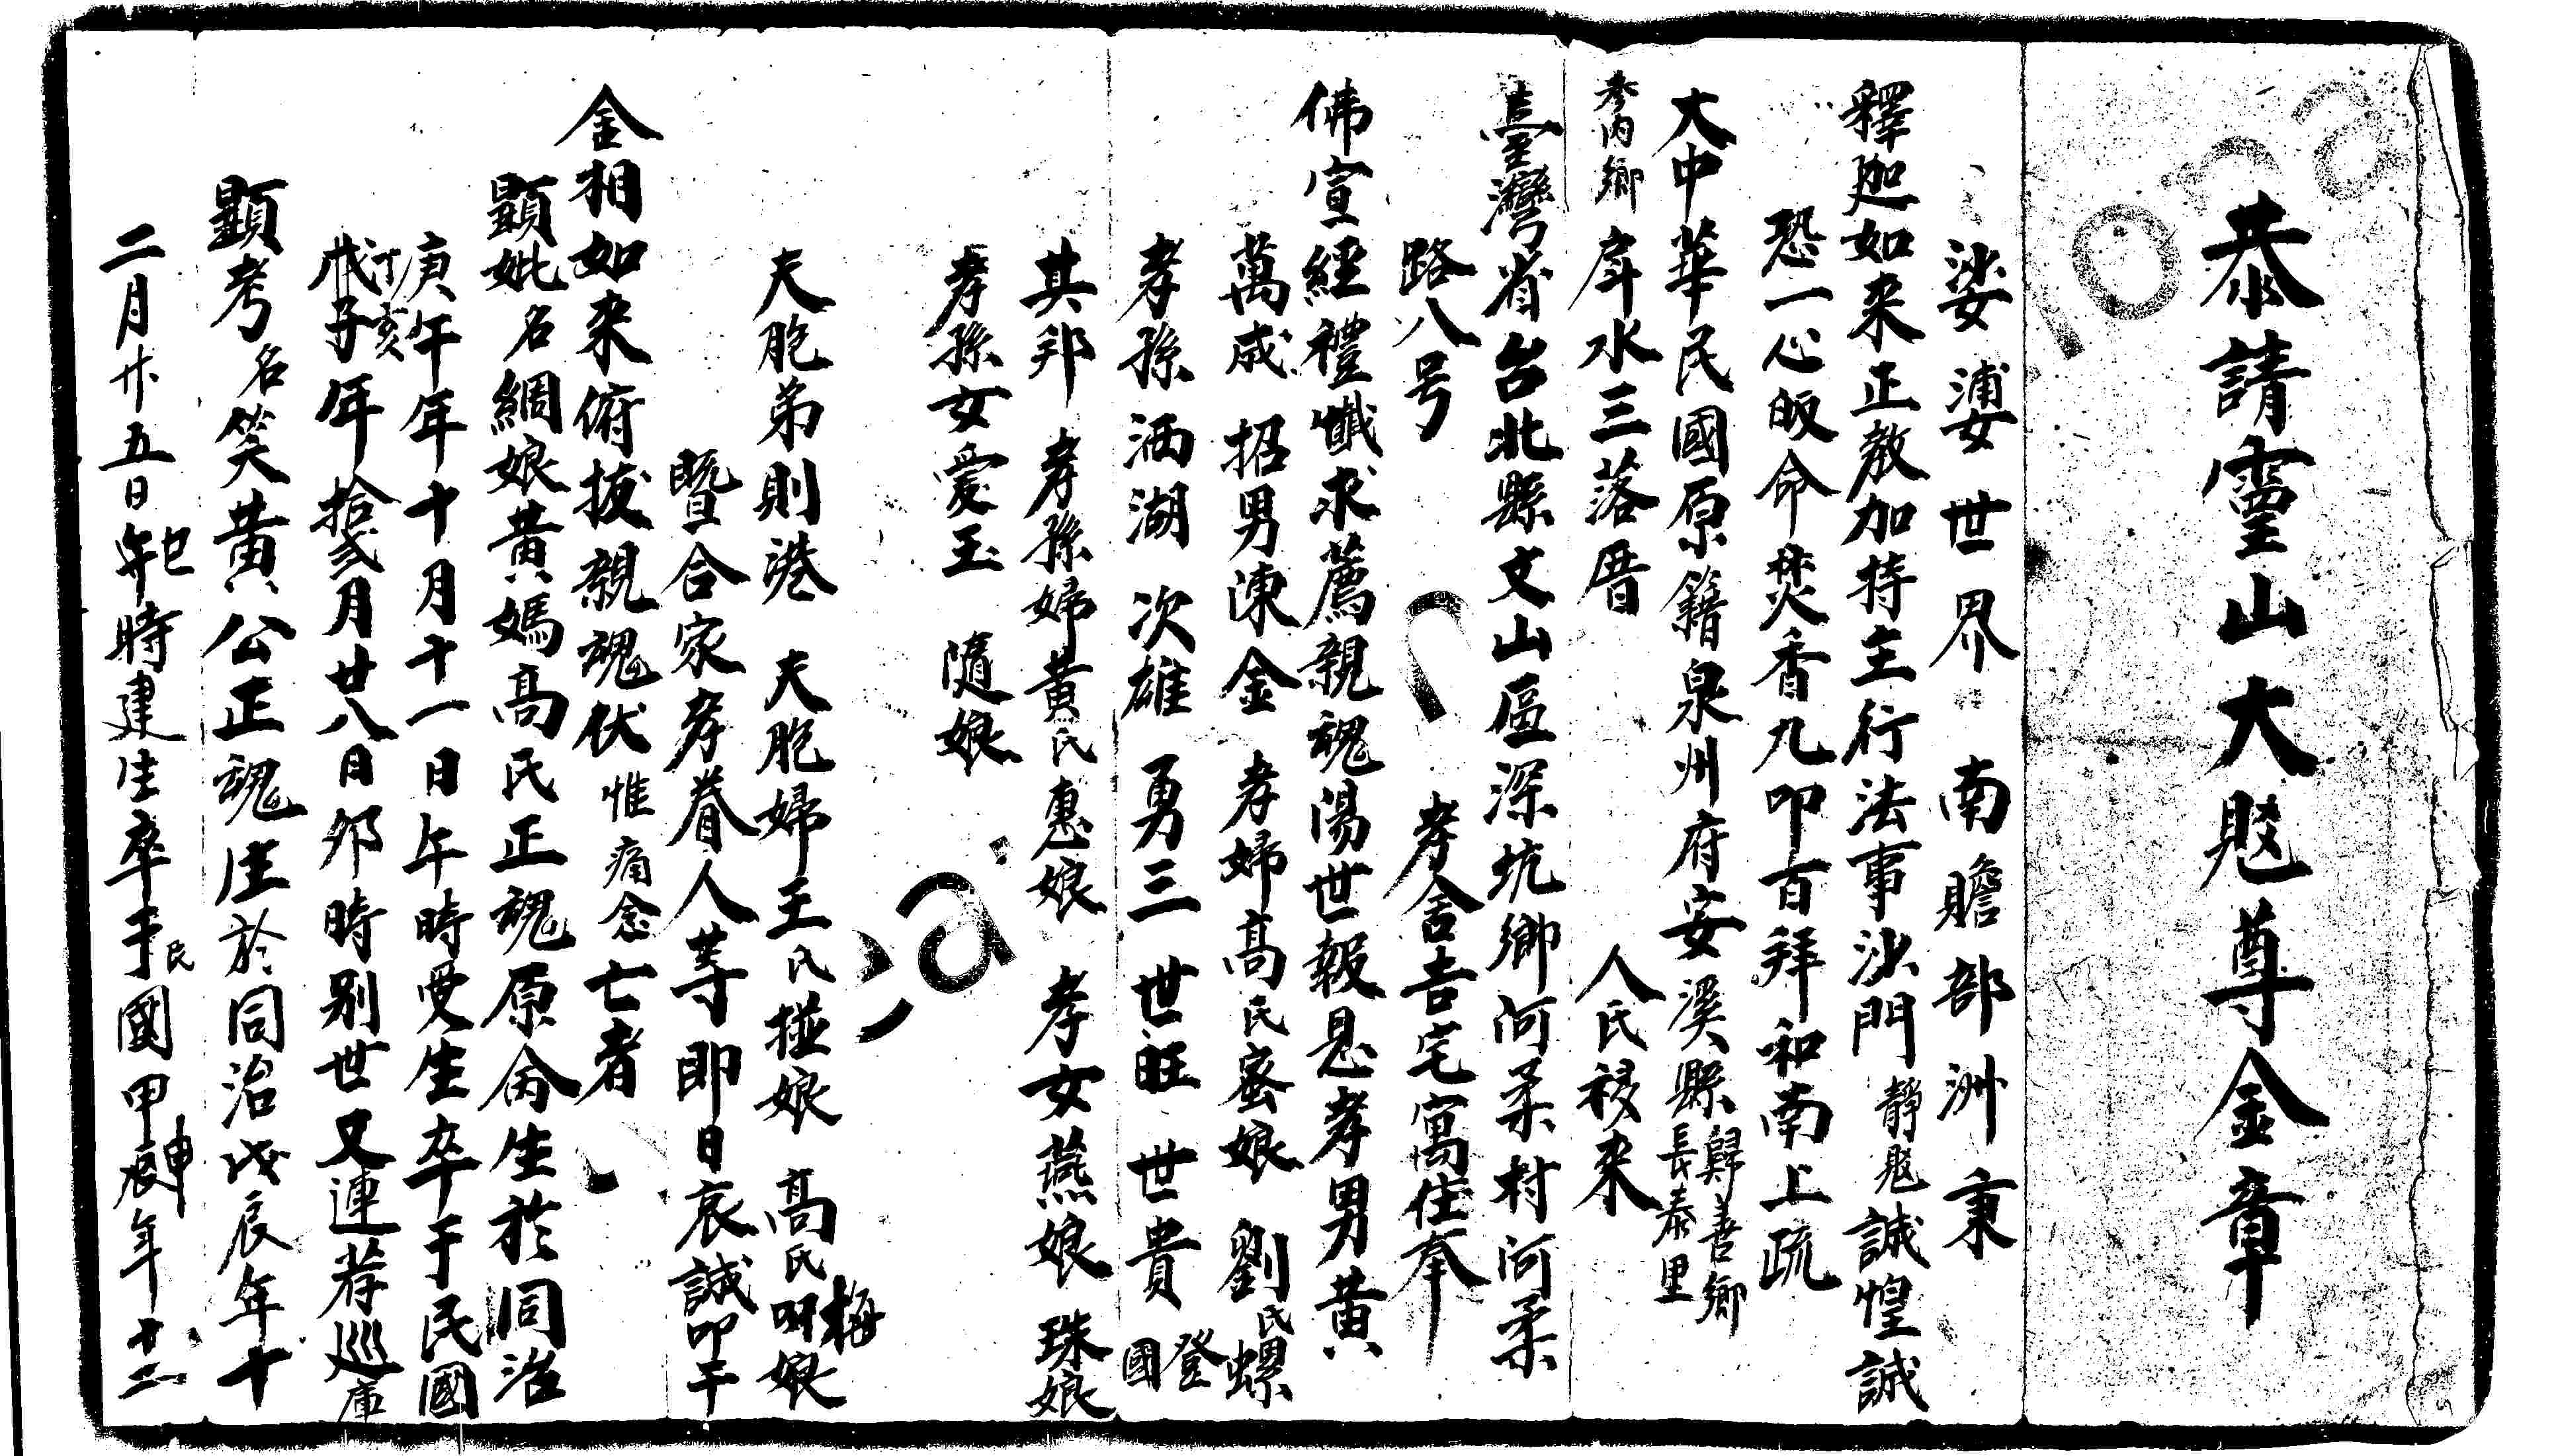 恭請靈山大覡尊金章
娑婆世界 南贍部洲 秉
釋迦如來正教加持主行法事沙門靜覡誠惶誠
恐一心皈命焚香九叩百拜和南上疏
大中華民國原籍泉州府安溪縣歸善鄉長泰里
参内鄉 庠水三落厝 人氏移來
臺灣省台北縣文山區深坑鄉河柔村河柔
路八号 孝舍吉宅寓住奉
佛宣經禮懺求薦親魂陽世報恩孝男黃
萬成 招男陳金 孝婦高氏蜜娘 劉氏螺
孝孫洒湖 次雄 勇三 世旺 世貴 登國
其邦 孝孫婦黃氏惠娘 孝女燕娘 珠娘
孝孫女愛玉 隨娘
夫胞弟則港 夫胞婦王氏碰娘 高氏梅娘
暨合家孝眷人等即日哀誠叩干
金相如來俯拔親魂伏惟痛念亡者
顯妣名綢娘黃媽高氏正魂原命生於同治
庚午年十月十一日午時受生卒于民國
丁亥戊子年拾弍月廿八日卯時別世又連荐巡庫
顯考名笑黃公正魂生於同治戊辰年十
二月廿五日巳午時建生卒于民國甲申辰年十二